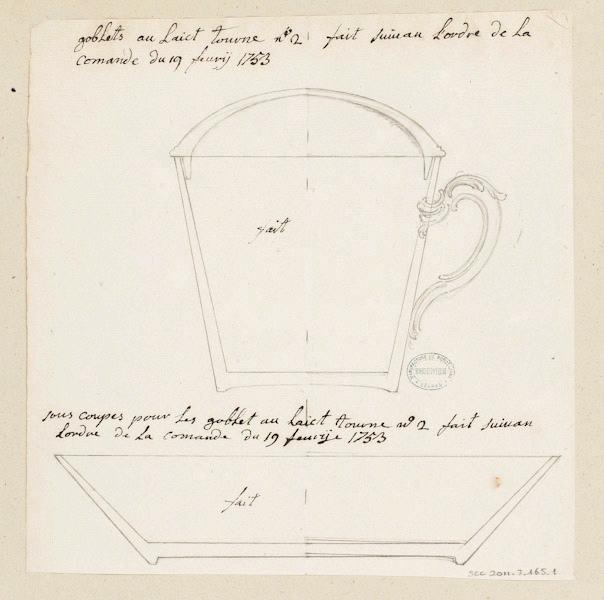 goblets au Laict tourne n° 2 fait suivan l'ordre de La
comande du 19 fevrij 1753
fait
MANUFACTURE DE PORCELAINE
SEVRES
sous coupes pour Les goblet au Laict tourne n° 2 fait suivan
Lordre de La comande du 19 fevrije 1753
fait
SCC 2011-3-165-1